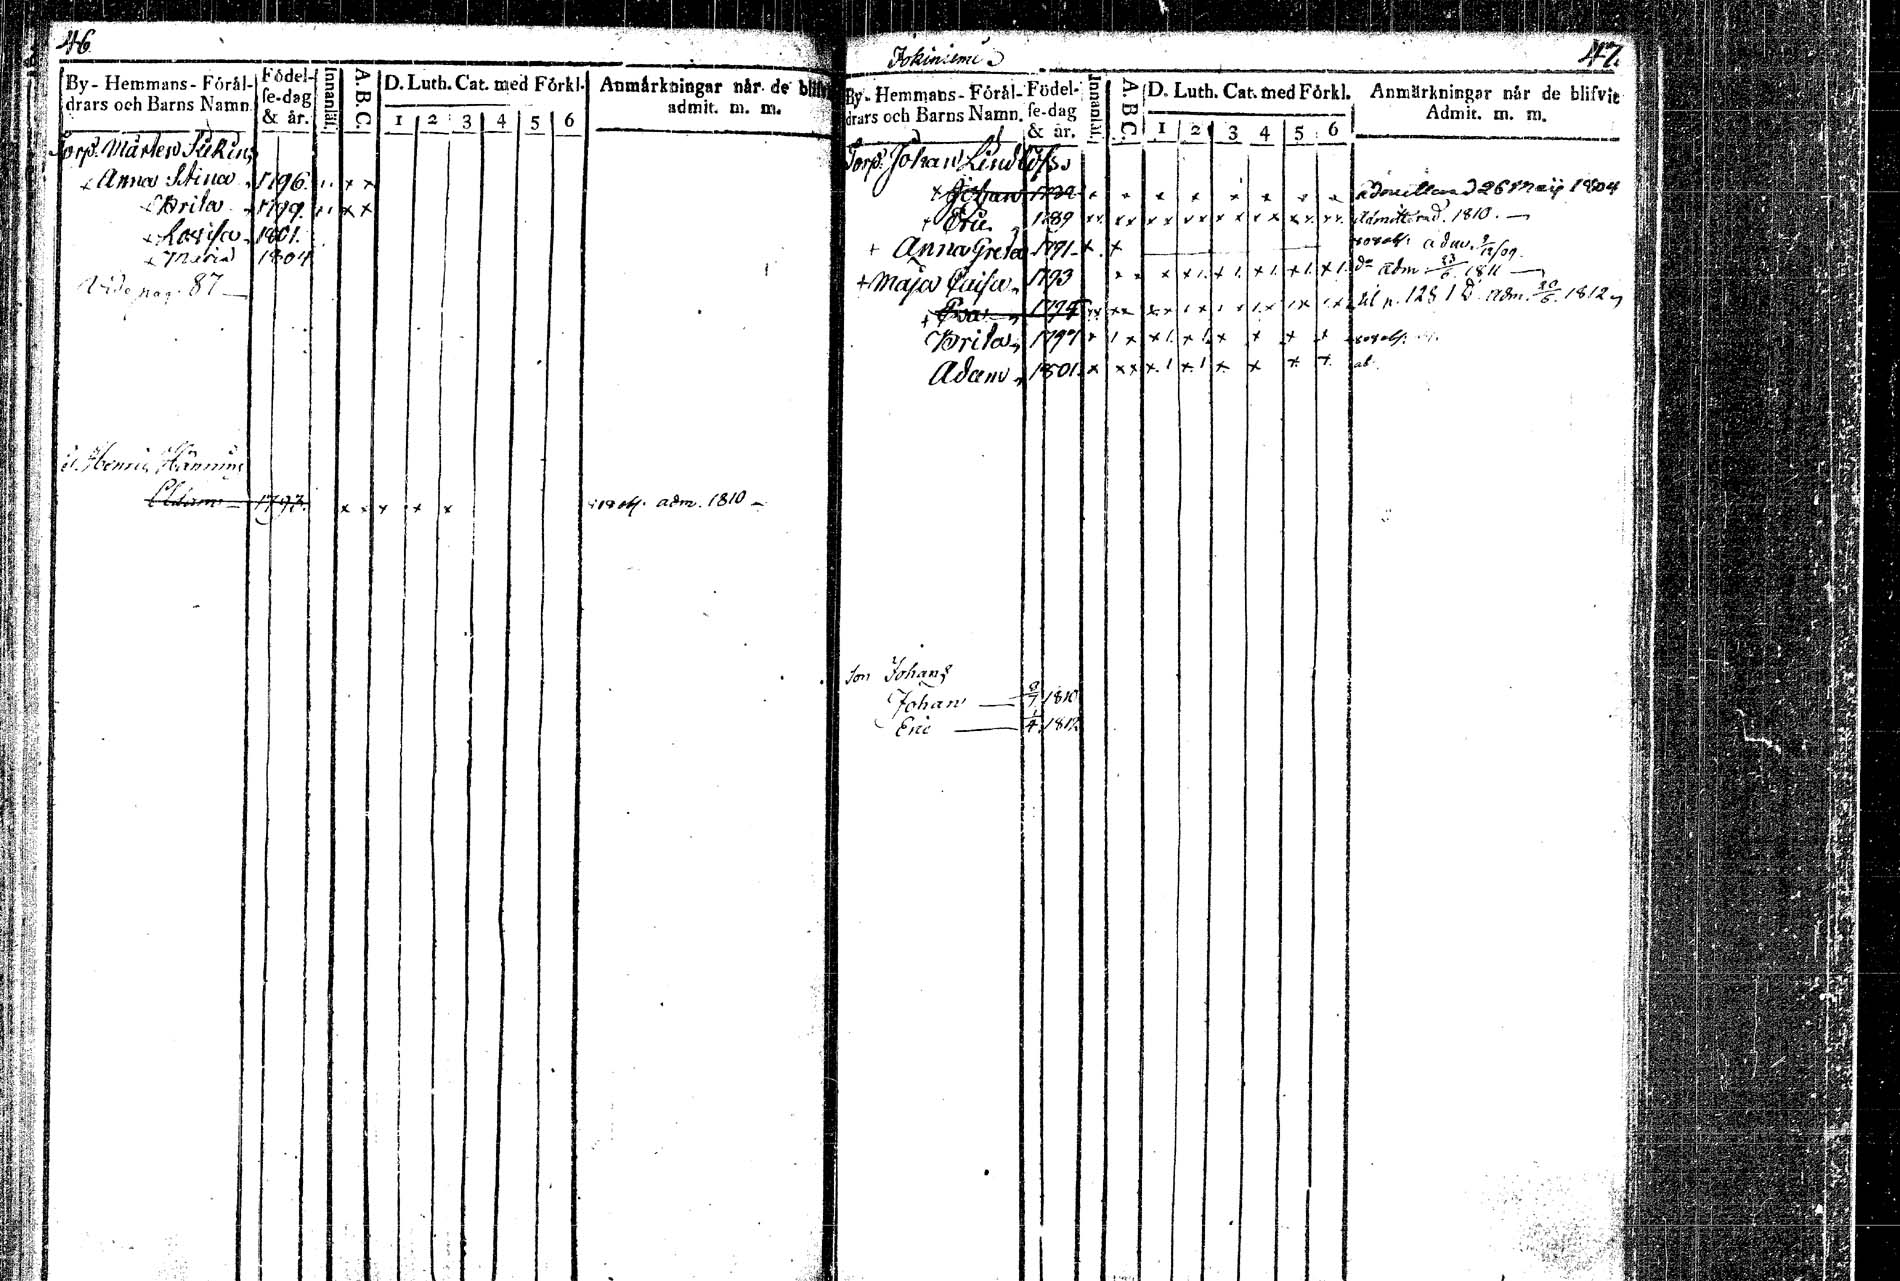 46
By- Hemmans- Förål-
drars och Barns Namn.
Födel-
se-dag
& år.
Innanläs.
A. B. C.
D. Luth. Cat. med Förkl.
1 2 3 4 5 6
Anmärkningar når de blifvit
admit. m. m.
Torp. Mårten
+ Anna Stina 1796. x x
+ Brita 1799. x x
+ Lovisa 1801.
+ Maria 1804
Vide pag. 87
Henric
Adam 1793. x x x x adm. 1810
Jokiniemi
47.
By- Hemmans- Förål-
drars och Barns Namn.
Födel-
se-dag
& år.
Innanläs.
A. B. C.
D. Luth. Cat. med Förkl.
1 2 3 4 5 6
Anmärkningar når de blifvit
Admit. m. m.
Torp. Johan Lindlöfs
+ Johan x x x x x x x x 26 Maij 1804
+ Eric 1789 xx xx xx xx xx xx xx xx 1810.
+ Anna Greta 1791 x x adm.
+ Maja Caisa 1793 do adm. 23/6 1811
+ 1794 til p. 128 adm. 1812
Brita 1797
Adam 1801.
Son Johans
Johan 1810
Eric 1/4 1812